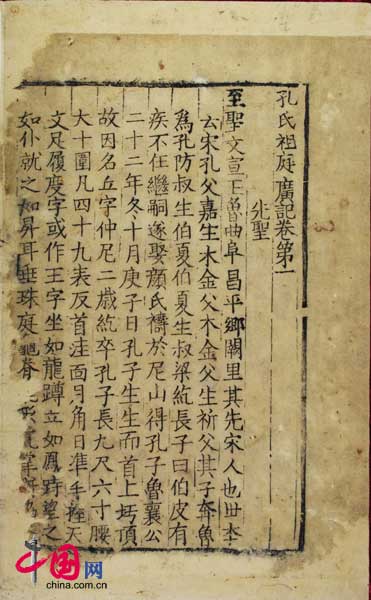 孔氏祖庭廣記卷第一
先聖
至聖文宣王魯曲阜昌平鄉闕里其先宋人也世本
云宋孔父嘉生木金父木金父生祈父其子奔魯
爲孔防叔生伯夏伯夏生叔梁紇長子曰伯皮有
疾不任繼嗣遂娶顏氏禱於尼山得孔子魯襄公
二十二年冬十月庚子日孔子生生而首上圩頂
故因名丘字仲尼二歲紇卒孔子長九尺六寸腰
大十圍凡四十九表反首洼面月角日準手握天
文足履度字或作王字坐如龍蹲立如鳳峙望之
如仆就之如昇耳垂珠庭龜脊
中国网
china.com.cn